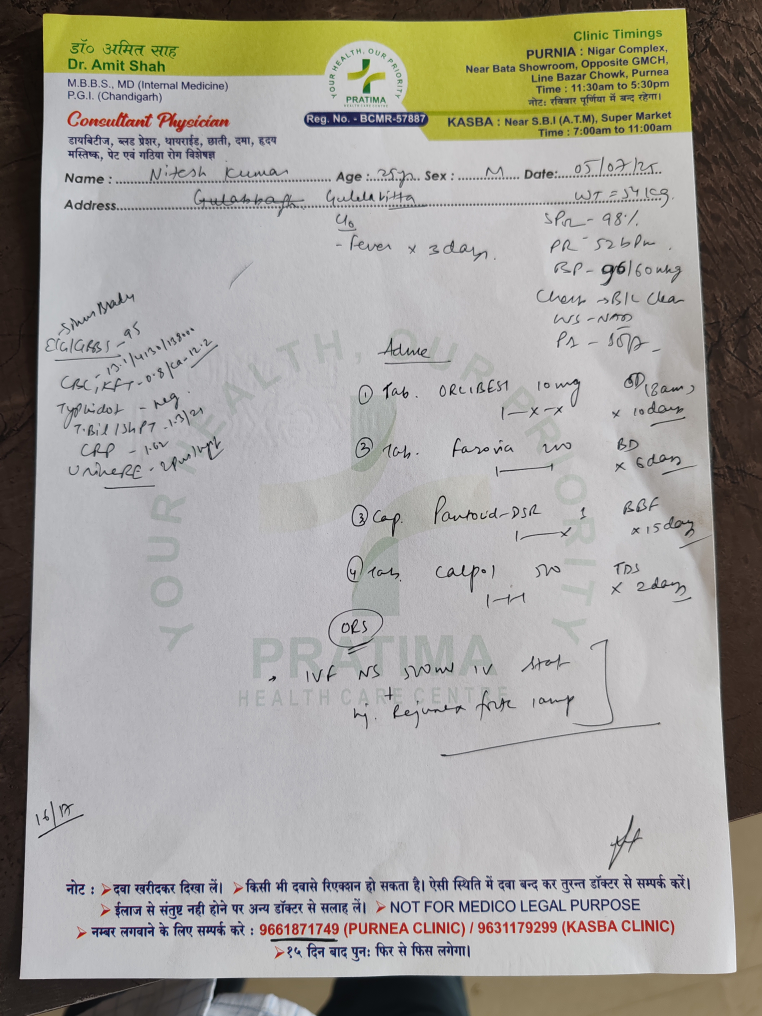 डॉ० अमित साह
Dr. Amit Shah
M.B.B.S., MD (Internal Medicine)
P.G.I. (Chandigarh)
Consultant Physician
डायबिटीज, ब्लड प्रेशर, थायराईड, छाती, दमा, हृदय
मस्तिष्क, पेट एवं गठिया रोग विशेषज्ञ
YOUR HEALTH, OUR PRIORITY
PRATIMA
HEALTH CARE CENTRE
Reg. No. - BCMR-57887
Clinic Timings
PURNIA : Nigar Complex,
Near Bata Showroom, Opposite GMCH,
Line Bazar Chowk, Purnea
Time : 11:30am to 5:30pm
नोट: रविवार पूर्णिया में बन्द रहेगा।
KASBA : Near S.B.I (A.T.M), Super Market
Time : 7:00am to 11:00am
Name : Nitesh Kumar Age : 25yr Sex : M Date: 05/07/25
Address Gulabbagh
WT = 54 kg
c/o
- Fever x 3 days
SPO2 - 98%
PR - 52 bpm
BP - 96/60 mmHg
Chest → B/L Clear
PA - Soft
Sinus Brady
ECG/GRBS - 95
CBC, KFT - 0.8/Ca-12.2
Typhidot - neg
T.Bil/SGPT - 1.3/21
CRP - 1.62
Urine RE -
Advice
① Tab. ORLIBEST 10mg OD (8am)
1-x-x x 10 days
② Tab. Farovia 200 BD
x 5 days
③ Cap. Pantocid-DSR 1 BBF
x 15 days
④ Tab. Calpol 500 TDS
x 2 days
ORS
IVF NS 500ml IV stat
+
Inj. Rejunex forte 1amp
YOUR HEALTH, OUR PRIORITY
PRATIMA
HEALTH CARE CENTRE
नोट : ➢ दवा खरीदकर दिखा लें। ➢ किसी भी दवासे रिएक्शन हो सकता है। ऐसी स्थिति में दवा बन्द कर तुरन्त डॉक्टर से सम्पर्क करें।
➢ ईलाज से संतुष्ट नही होने पर अन्य डॉक्टर से सलाह लें। ➢ NOT FOR MEDICO LEGAL PURPOSE
➢ नम्बर लगवाने के लिए सम्पर्क करे : 9661871749 (PURNEA CLINIC) / 9631179299 (KASBA CLINIC)
➢ १५ दिन बाद पुनः फिर से फिस लगेगा।